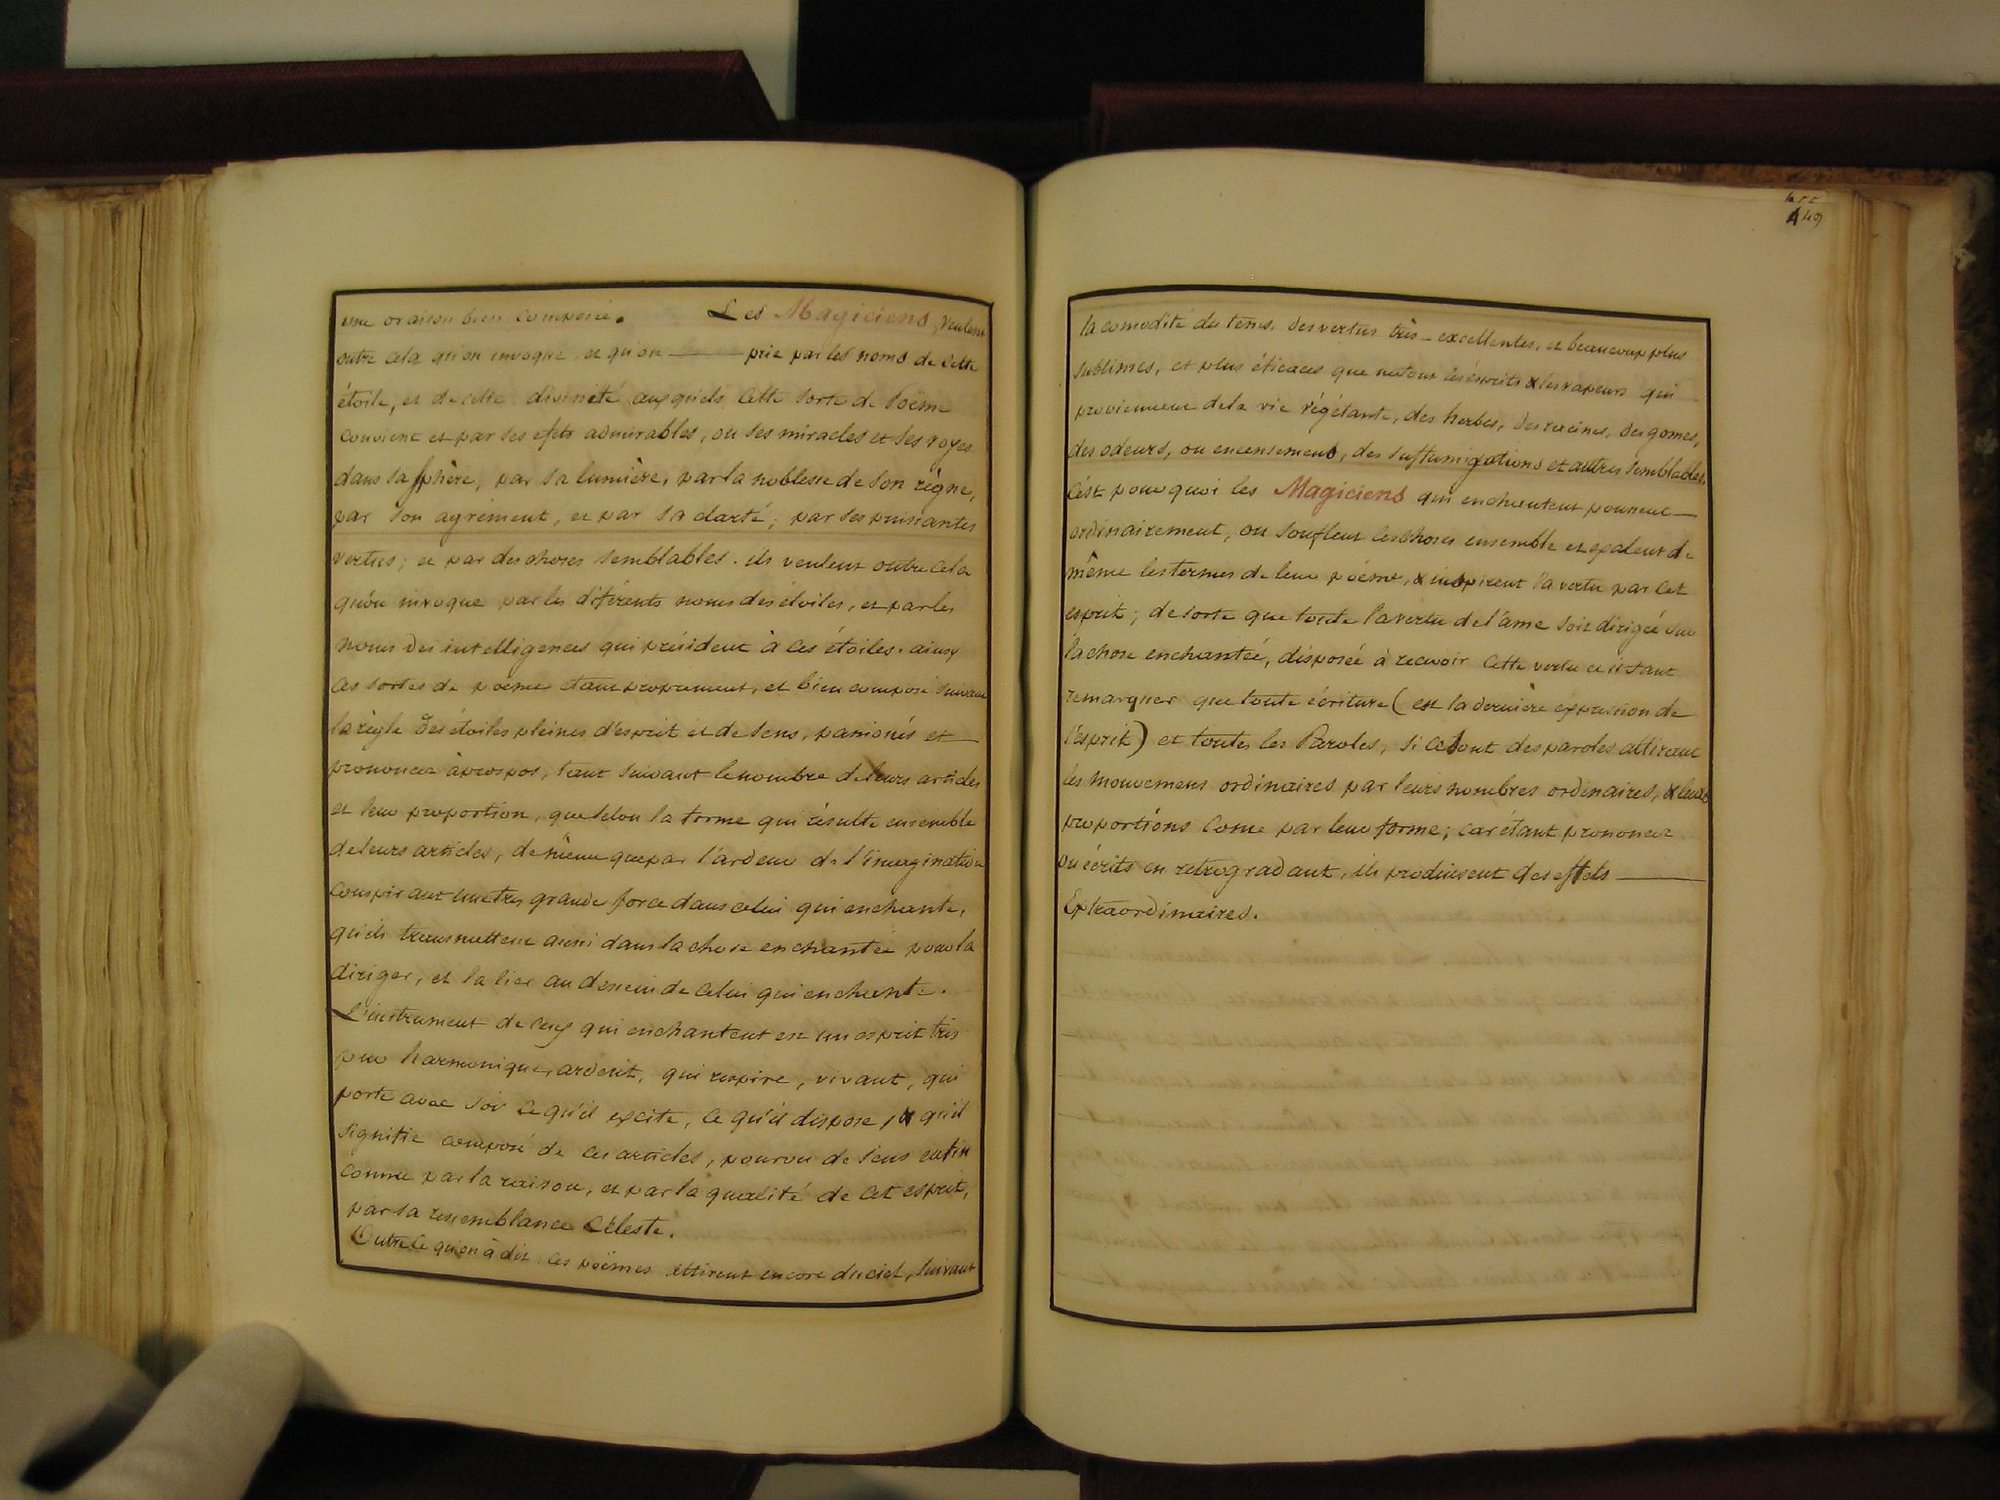 une oraison bien composée. Les Magiciens, veulent
outre cela qu'on invoque, et qu'on ——— prie par les noms de cette
étoile, et de cette divinité auxquels cette sorte de Poëme
convient et par ses efets admirables, ou ses miracles et ses voyes
dans sa sphère, par sa lumière, par la noblesse de son règne,
par son agrément, et par sa clarté; par ses puissantes
vertus; et par des choses semblables. ils veulent outre cela
qu'on invoque par les diférents noms des étoiles, et par les
noms des intelligences qui président à ces étoiles. ainsy
ces sortes de poëme étant proprement, et bien composé suivant
la règle des étoiles pleines d'esprit et de sens, passionés et —
prononcez àpropos, tant suivant le nombre de leurs articles
et leur proportion, que selon la forme qui résulte ensemble
de leurs articles, de même que par l'ardeur de l'imagination
conspirant une tres grande force dans celui qui enchante,
qu'ils transmettent aussi dans la chose enchantée pour la
diriger, et la lier au dessein de celui qui enchante.
L'instrument de ceux qui enchantent est un esprit très
pur harmonique, ardent, qui respire, vivant, qui
porte avec soi ce qu'il excite, ce qu'il dispose, & qu'il
signifie composé de ces articles, pourvu de sens enfin
comme par la raison, et par la qualité de cet esprit,
par sa ressemblance Céleste.
Outre ce qu'on à dit ces poëmes attirent encore du ciel, suivant
149
la comodité du tems. des vertus très-excellentes, et beaucoup plus
sublimes, et plus éficaces que ne font les esprits & les vapeurs qui
proviennent de la vie végétante, des herbes, des racines, des gomes,
des odeurs, ou encensemens, des suffumigations et autres semblables.
C'ést pourquoi les Magiciens qui enchantent pounent—
ordinairement, ou souflent les choses ensemble et exalent de
même les termes de leur poëme, & inspirent la vertu par cet
esprit; de sorte que toute la vertu de l'âme soit dirigée sur
la chose enchantée, disposée à recevoir cette vertu et il faut
remarquer que toute écriture (est la dernière expression de
l'esprit) et toutes les Paroles, si ce sont des paroles attirant
les mouvemens ordinaires par leurs nombres ordinaires, & leurs
proportions come par leur forme; car étant prononcez
ou écrits en retrogradant, ils produisent des effets ———
Extraordinaires.